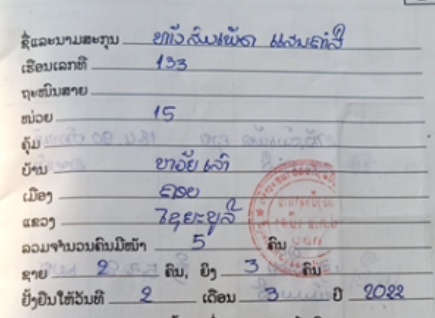 ຊື່ແລະນາມສະກຸນ ທ້າວ ສົມເພັດ ແສນຄໍາສີ
ເຮືອນເລກທີ 133
ຖະໜົນສາຍ
ໜ່ວຍ 15
ຄຸ້ມ
ບ້ານ
ເມືອງ
ແຂວງ ໄຊຍະບູລີ
ລວມຈໍານວນຄົນມີໜ້າ 5 ຄົນ
ຊາຍ 2 ຄົນ, ຍິງ 3 ຄົນ
ຢັ້ງຢືນໃຫ້ວັນທີ 2 ເດືອນ 3 ປີ 2022